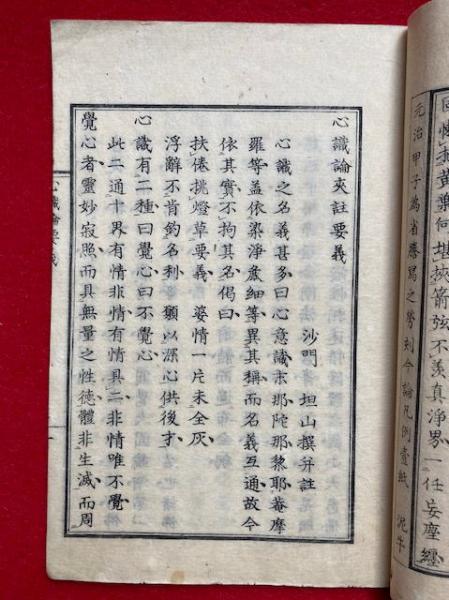 回憶抛黃藥向堪挾箭弦不羨真淨界一任妄塵經
元治甲子為省謄寫之勞刻今論凡例壹紙 泥牛
心識論夾註要義
沙門 坦山撰并註
心識之名義甚多曰心意識末那陀那黎耶菴摩
羅等蓋依染淨麁細等異其稱而名義互通故今
依其實不拘其名偈曰
扶倦挑燈草要義 婆情一片未全灰
浮辭不肯釣名利 獨以深心供後才
心識有二種曰覺心曰不覺心
此二通十界有情非情有情具二非情唯不覺
覺心者靈妙寂照而具無量之性德體非生滅而周
心識論要義
一